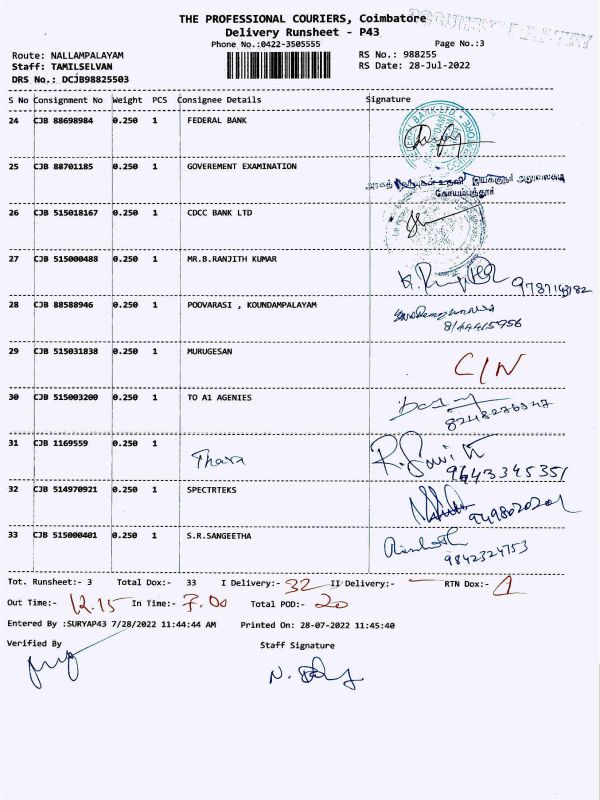 THE PROFESSIONAL COURIERS, Coimbatore
Delivery Runsheet - P43
Phone No.:0422-3505555
Page No.:3
Route: NALLAMPALAYAM
RS No.: 988255
Staff: TAMILSELVAN
RS Date: 28-Jul-2022
DRS No.: DCJB98825503
S No Consignment No Weight PCS Consignee Details Signature
24 CJB 88698984 0.250 1 FEDERAL BANK
25 CJB 88701185 0.250 1 GOVEREMENT EXAMINATION
கோயம்புத்தூர்
26 CJB 515018167 0.250 1 CDCC BANK LTD
27 CJB 515000488 0.250 1 MR.B.RANJITH KUMAR
28 CJB 88588946 0.250 1 POOVARASI , KOUNDAMPALAYAM
8144415956
29 CJB 515031838 0.250 1 MURUGESAN
C/N
30 CJB 515003200 0.250 1 TO A1 AGENIES
8248276347
31 CJB 1169559 0.250 1 Thara
9643345351
32 CJB 514970921 0.250 1 SPECTRTEKS
9498020201
33 CJB 515000401 0.250 1 S.R.SANGEETHA
9842324753
Tot. Runsheet:- 3 Total Dox:- 33 I Delivery:- 32 II Delivery:- RTN Dox:- 1
Out Time:- 12.15 In Time:- 7.00 Total POD:- 20
Entered By :SURYAP43 7/28/2022 11:44:44 AM Printed On: 28-07-2022 11:45:40
Verified By Staff Signature